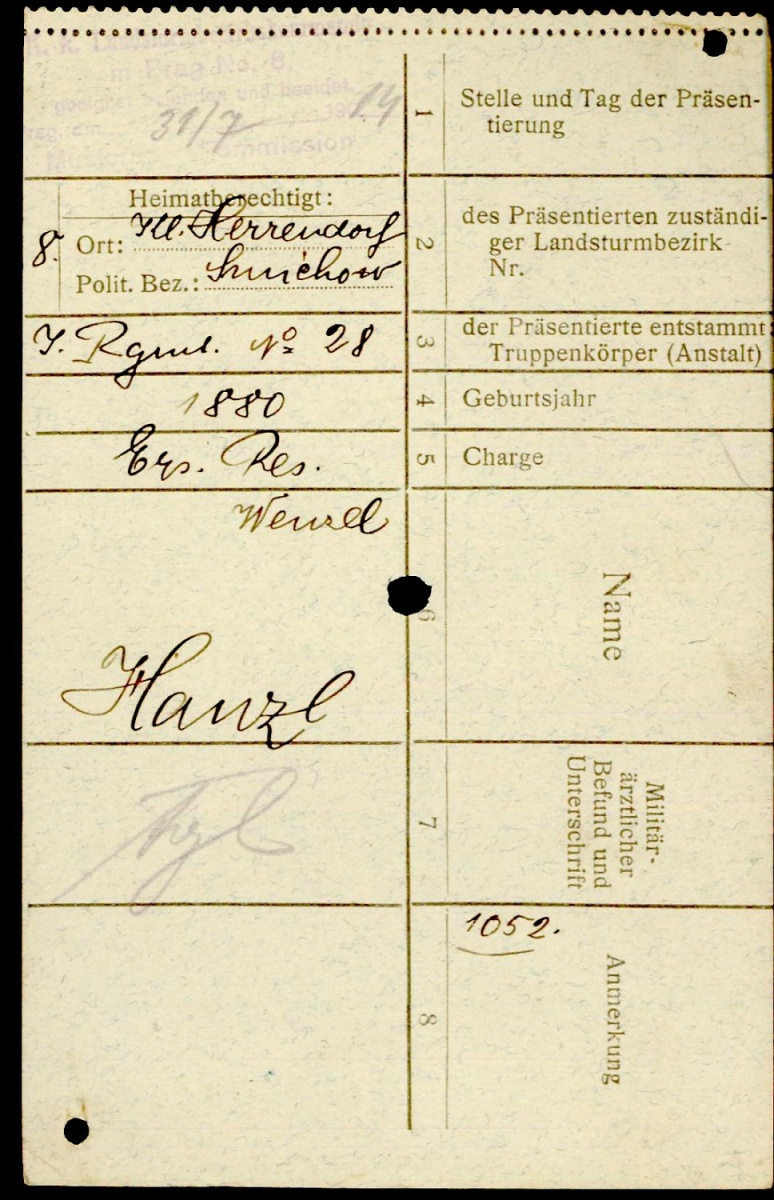 K. K. Landsturm
in Prag No. 8,
geeignet befunden und beeidet.
31/7 1914
Kommission
1
Stelle und Tag der Präsen-
tierung
Heimatberechtigt:
8.
Ort: Kl. Herrendorf
Polit. Bez.: Smichow
2
des Präsentierten zuständi-
ger Landsturmbezirk
Nr.
J. Rgmt. No 28
3
der Präsentierte entstammt
Truppenkörper (Anstalt)
1880
4
Geburtsjahr
Ers. Res.
5
Charge
Wenzel
Hanzl
6
Name
7
Militär-
ärztlicher
Befund und
Unterschrift
1052.
8
Anmerkung